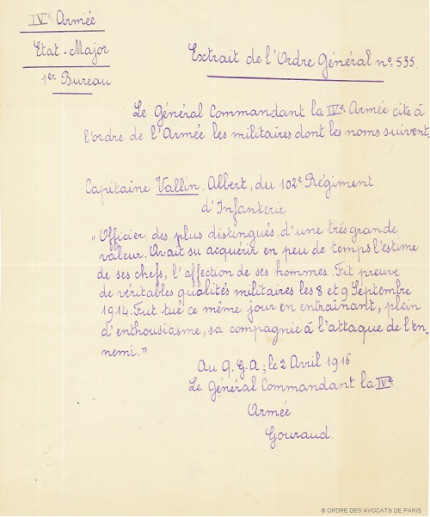 IVe Armée
Etat-Major
1er Bureau
Extrait de l'Ordre Général no 535.
Le Général Commandant la IVe Armée cite à
l'ordre de l'Armée les militaires dont les noms suivent,
Capitaine Vallin, Albert, du 102e Régiment
d'Infanterie
"Officier des plus distingués, d'une très grande
valeur. Avait su acquérir en peu de temps l'estime
de ses chefs, l'affection de ses hommes. Fit preuve
de véritables qualités militaires les 8 et 9 Septembre
1914. Fut tué ce même jour en entraînant, plein
d'enthousiasme, sa compagnie à l'attaque de l'en
nemi."
Au Q.G.A; le 2 Avril 1916
Le Général Commandant la IVe
Armée
Gouraud.
© ORDRE DES AVOCATS DE PARIS